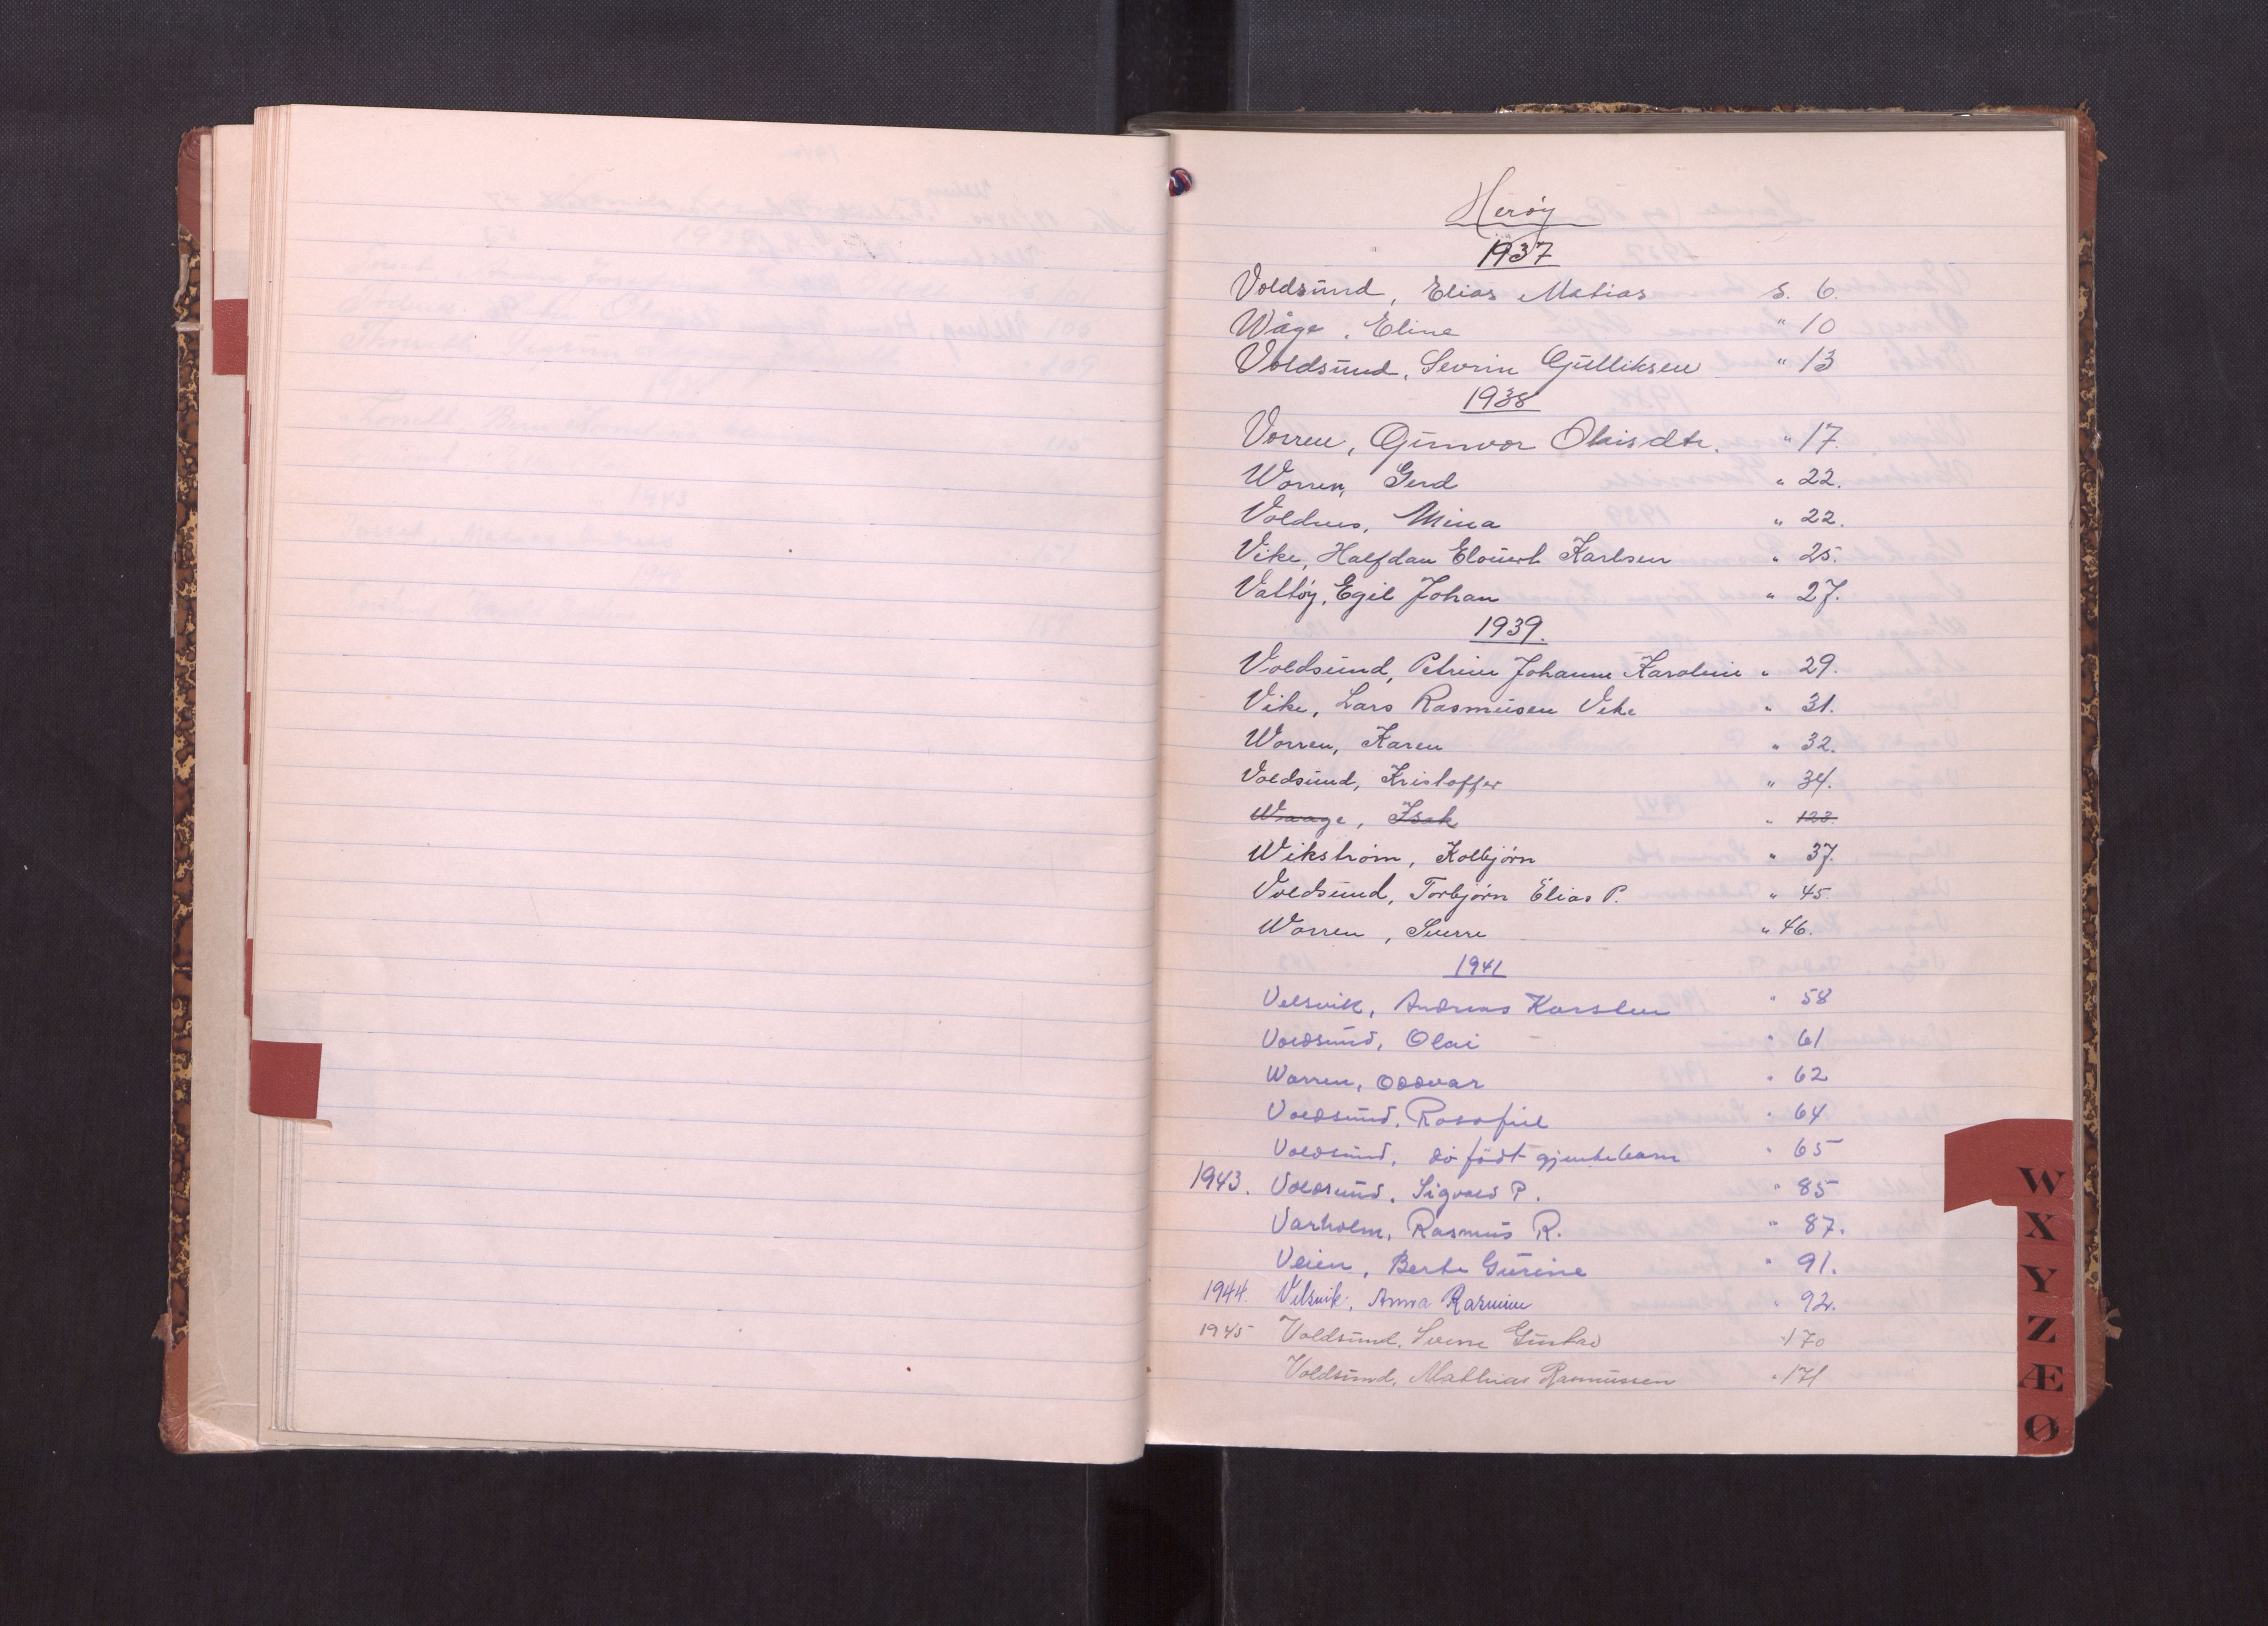 Herøy
1937
Voldsund, Elias Matias s. 6.
Wåge, Eline " 10
Voldsund, Sevrin Gulliksen " 13
1938
Vorren, Gunvor Olaisdtr. " 17.
Worren, Gerd " 22.
Voldnes, Mina " 22.
Vike, Halfdan Edvart Karlsen " 25.
Vattøy, Egil Johan " 27.
1939.
Voldsund, Petrine Johanne Karoline " 29.
Vike, Lars Rasmusen Vike " 31.
Worren, Karen " 32.
Voldsund, Kristoffer " 34.
Waage, Isak " 123.
Wikstrøm, Kolbjørn " 37.
Voldsund, Torbjørn Elias P. " 45.
Worren, Sverre " 46.
1941
Velsvik, Andreas Karsten " 58
Voldsund, Olai " 61
Worren, Oddvar " 62
Voldsund, Rosafine " 64
Voldsund, dø født gjentebarn " 65
1943. Voldsund, Sigvald P. " 85
Varholm, Rasmus R. " 87.
Veien, Berte Gurine " 91.
1944. Velsvik, Anna Rasmine " 92.
1945 Voldsund, Sverre Gustav " 170
Voldsund, Mathias Rasmussen " 171
W
X
Y
Z
Æ
Ø